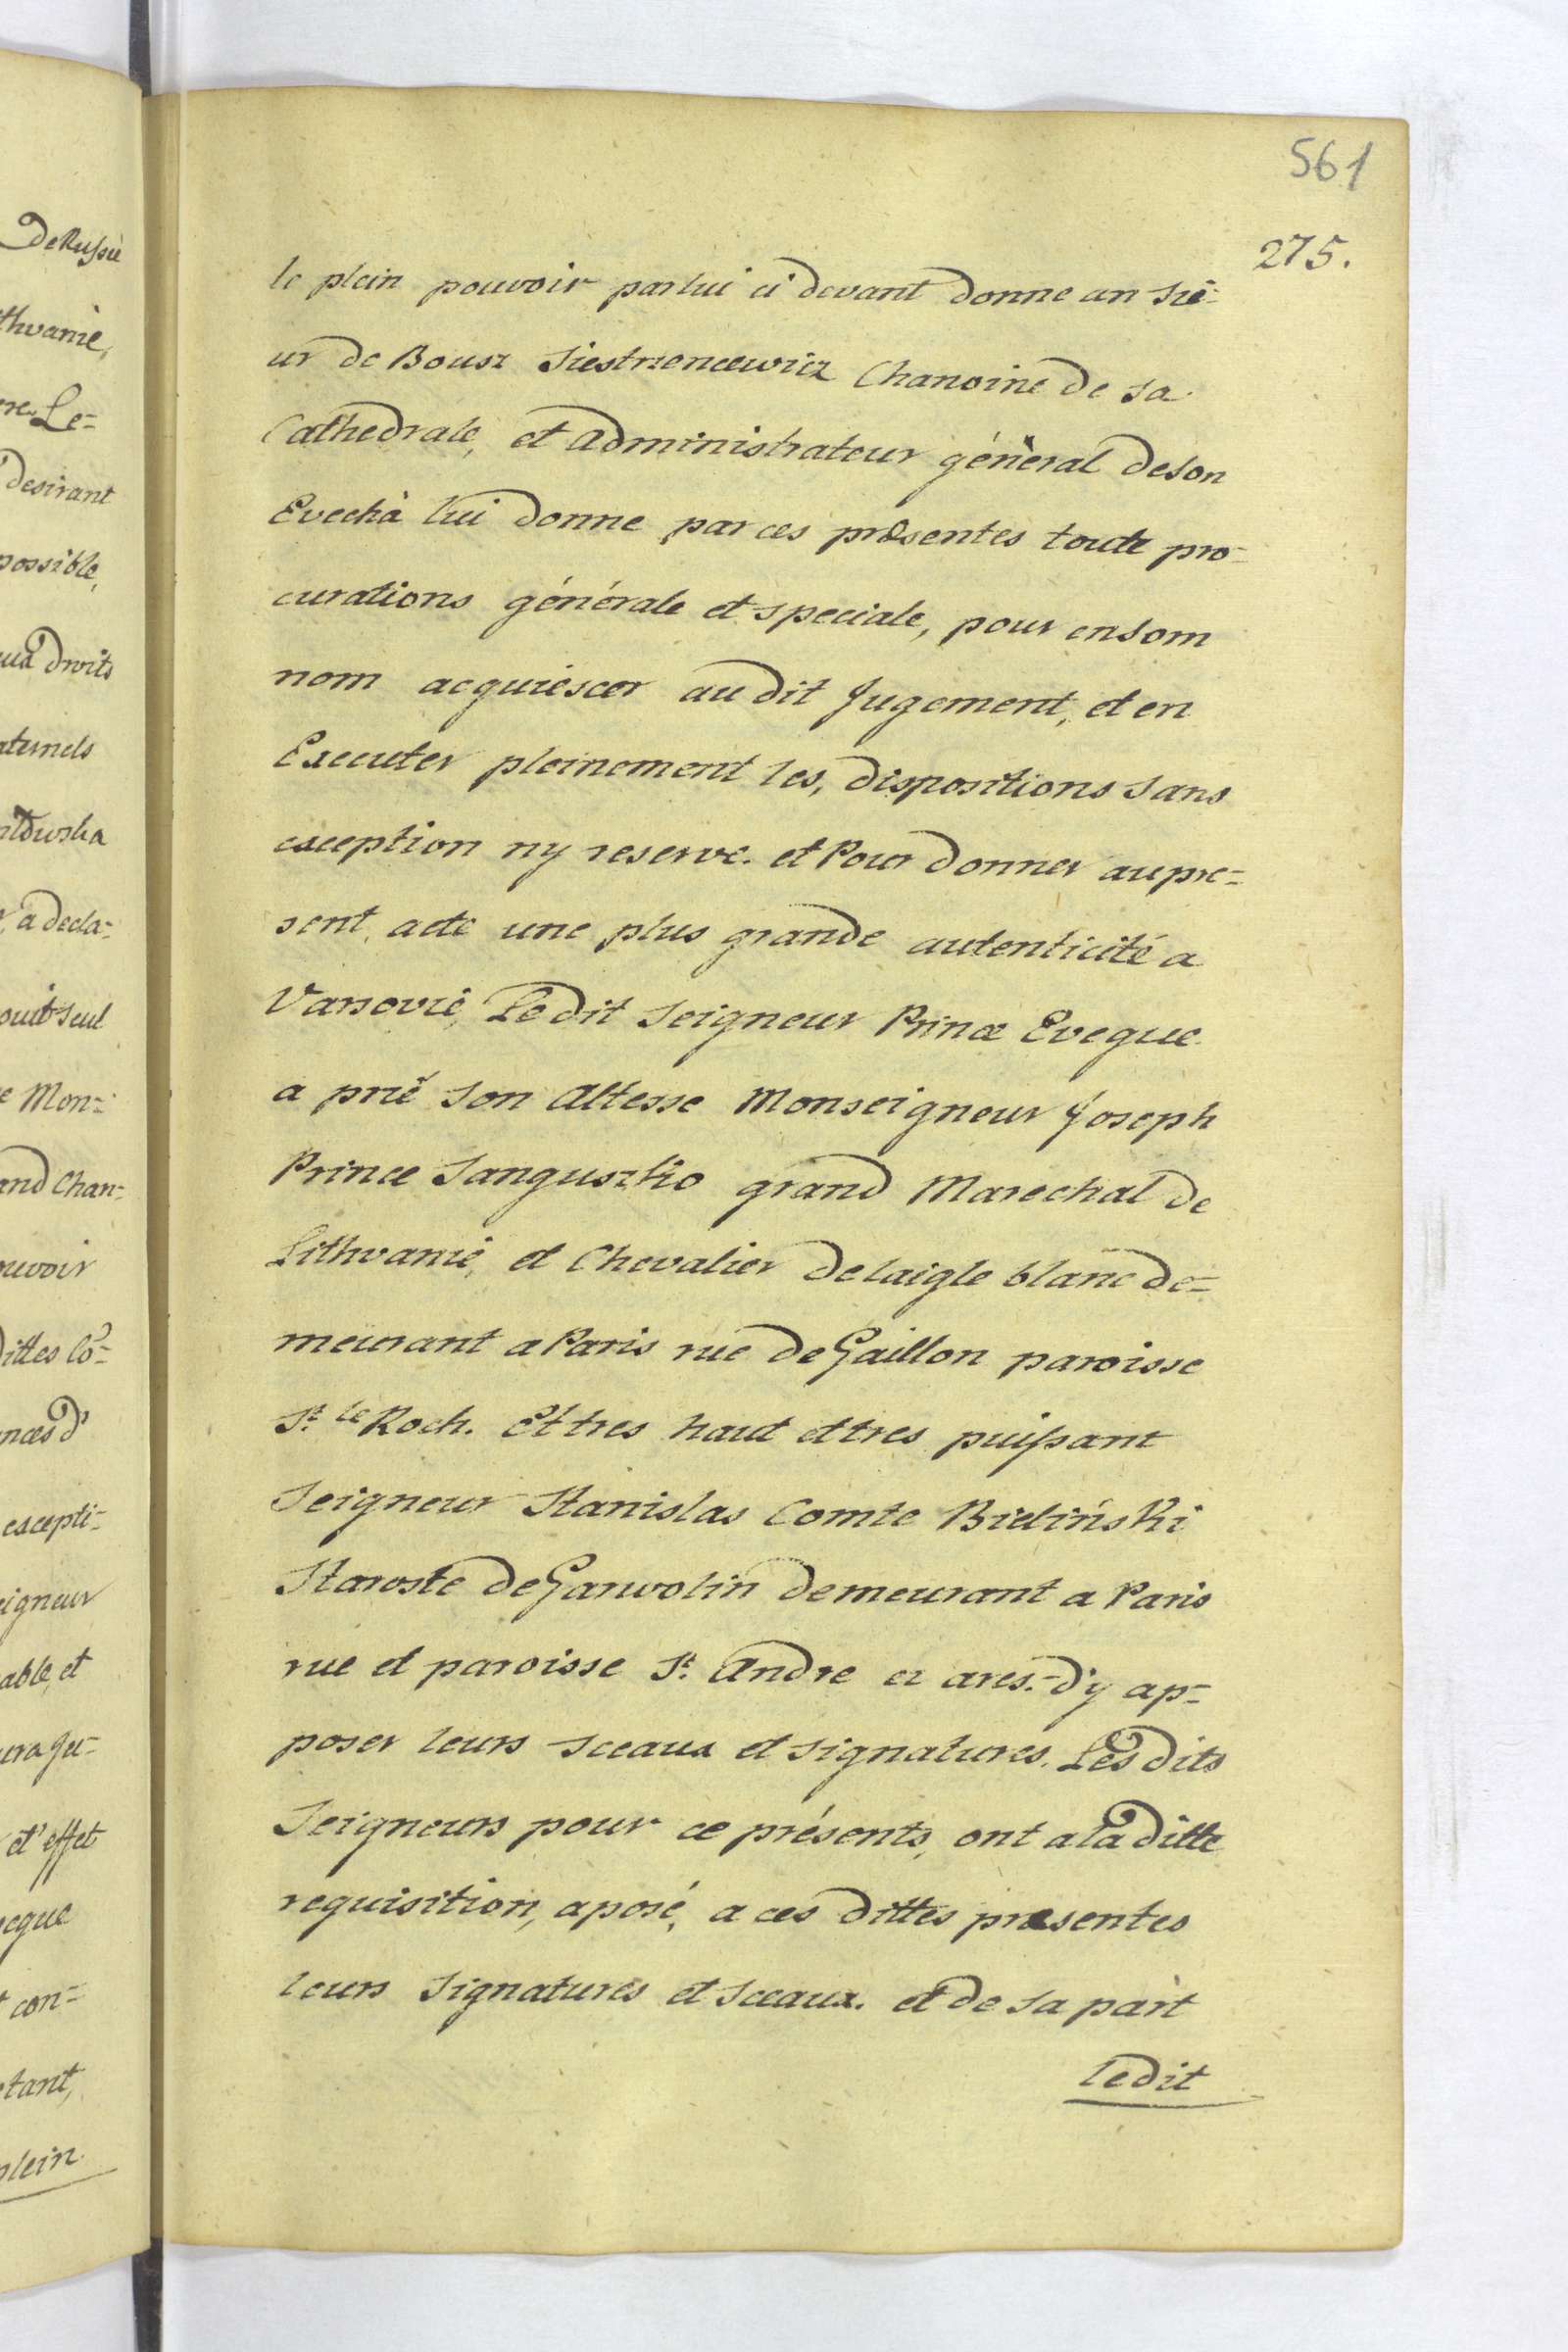 561
275.
le plein pouvoir par lui ci devant donne an Sie-
ur de Bousz Siestrzencewicz Chanoine de sa
Cathedrale, et administrateur géneral de son
Evechà lui donne par ces présentes toute pro-
curations générale et speciale, pour en som
nom acquiescer au dit Jugement, et en
Executer pleinement les, dispositions sans
exception ny reserve. et Pour donner au pre-
sent, acte une plus grande autenticité a
Varsovie, Le dit Seigneur Prince Eveque
a prié son Altesse Monseigneur Joseph
Prince Sanguszko grand Marechal de
Lithvanie, et Chevalier de laigle blanc de-
meurant a Paris rue de Gaillon paroisse
St. le Roch. Et tres haut et tres puissant
Seigneur Stanislas Comte Bieliński
Staroste de Garwolin demeurant a Paris
rue et paroisse St. Andre ez arcs. d'y ap-
poser leurs sceaux et signatures. Les dits
Seigneurs pour ce présents, ont a la ditte
requisition, aposé, a ces dittes presentes
leurs signatures et sceaux. et de sa part
ledit
De Russie
thvanie,
re Le-
desirant
possible,
eux droits
aternels
a decla-
ouit seul
e Mon-
and Chan-
ouvoir
dittes Co-
nces d'
excepti-
eigneur
able, et
et' effet
eque
con-
tant,
plein